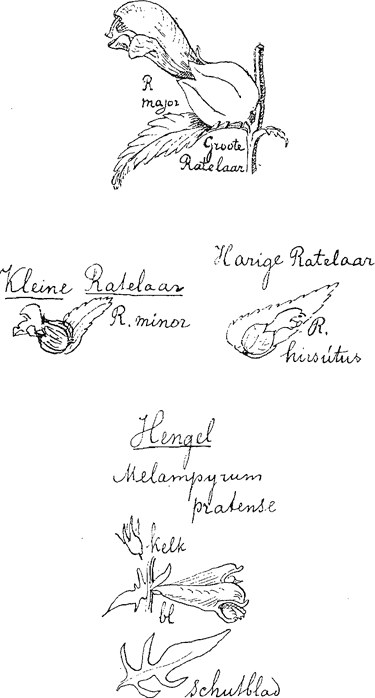 R
major
Groote
Ratelaar
Kleine Ratelaar
R. minor
Harige Ratelaar
R.
hirsútus
Hengel
Melampyrum
pratense
kelk
bl
schutblad